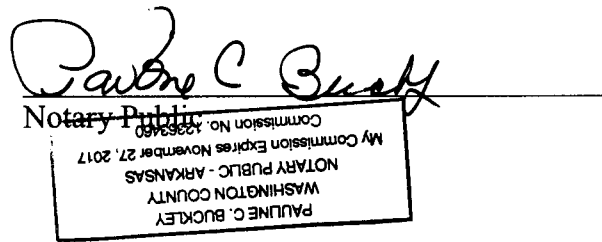 Pauline C Buckley
Notary Public
PAULINE C. BUCKLEY
WASHINGTON COUNTY
NOTARY PUBLIC - ARKANSAS
My Commission Expires November 27, 2017
Commission No. 12363460